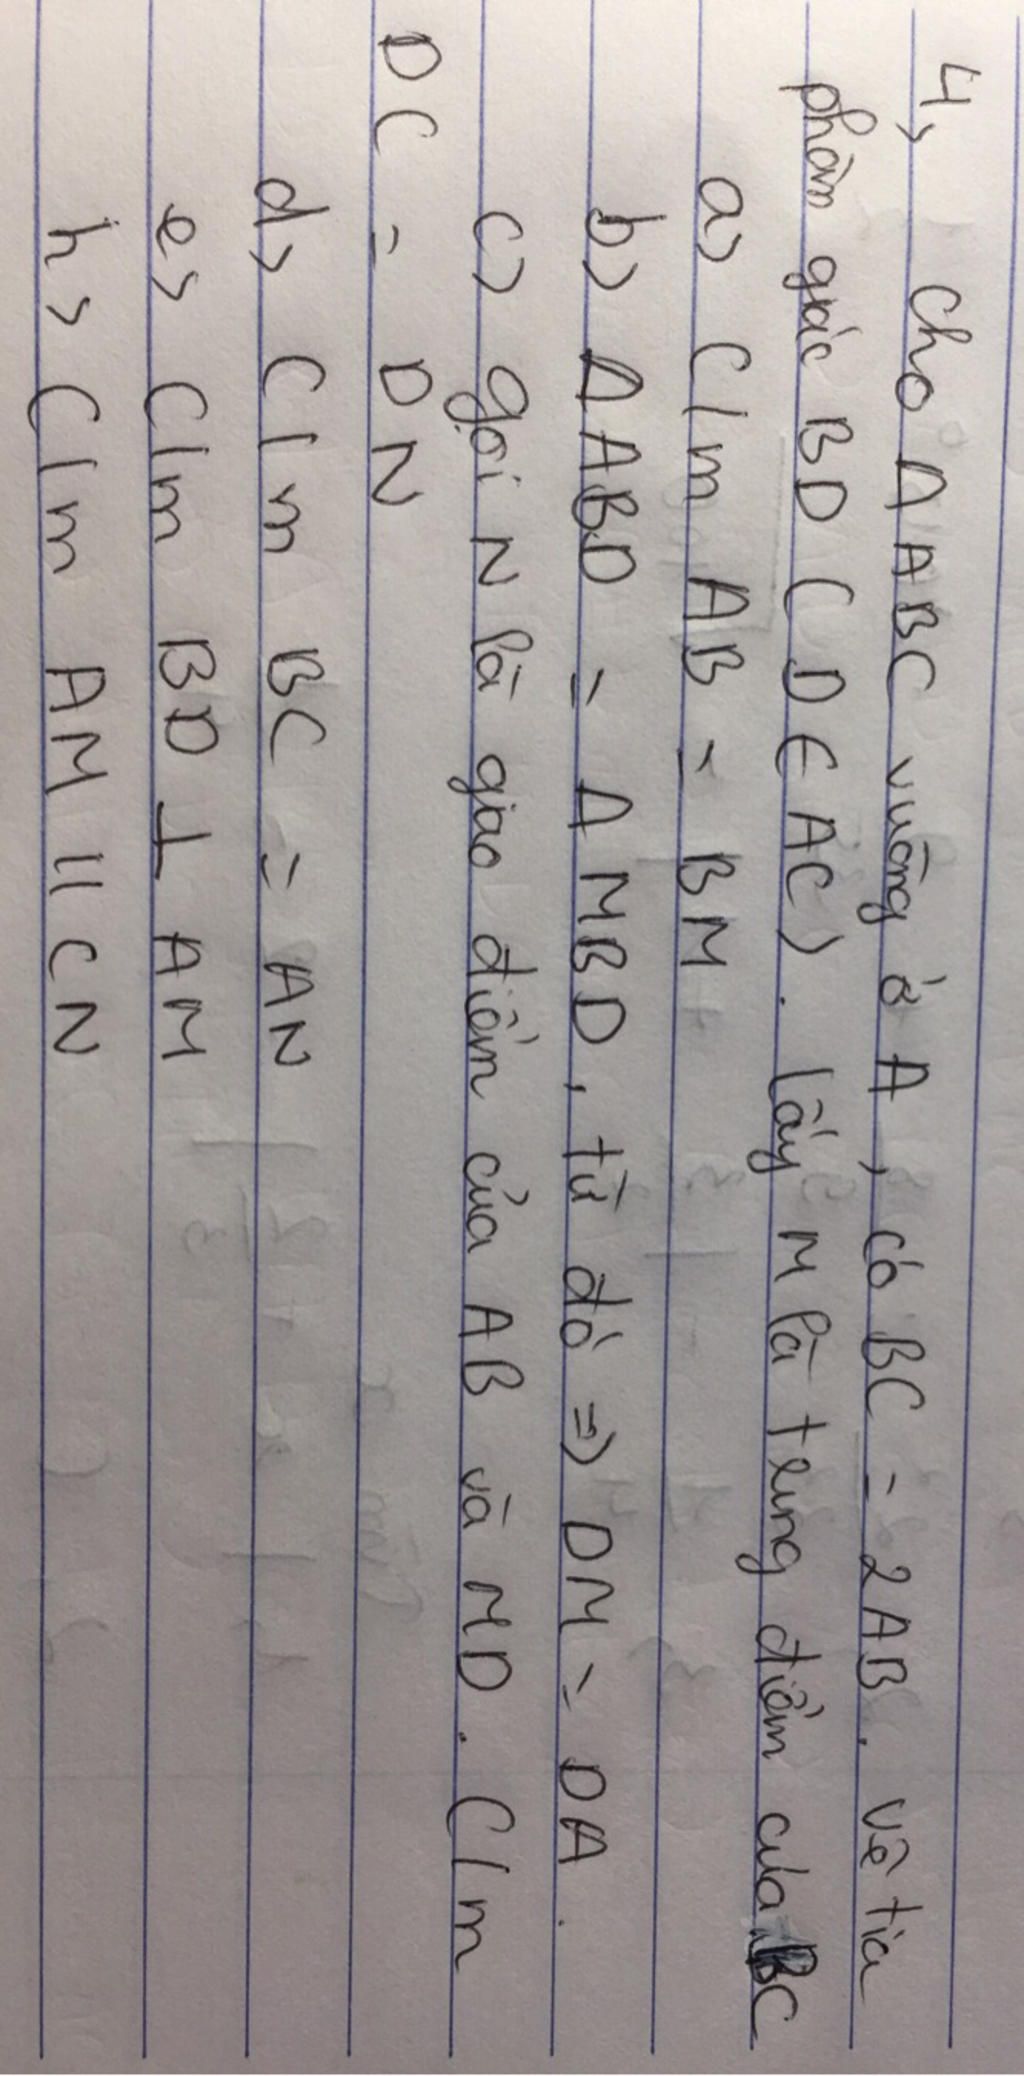 4, Cho Δ ABC vuông ở A, có BC = 2AB. Vẽ tia
phân giác BD (D ∈ AC). lấy M là trung điểm của BC
a) C/m AB = BM
b) Δ ABD = Δ MBD, từ đó => DM = DA.
c) gọi N là giao điểm của AB và MD. C/m
DC = DN
d) C/m BC = AN
e) C/m BD ⊥ AM
h) C/m AM || CN